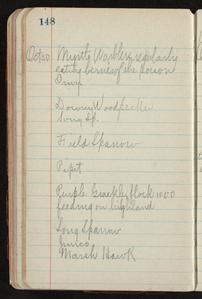 148
Oct 20. Myrtle Warblers regularly
eating berries of the Poison
Downy Woodpecker
Song Sp.
Field Sparrow
Pipit
Purple Grackle, flock 1000
feeding on highland
Song Sparrow
Junco
Marsh Hawk